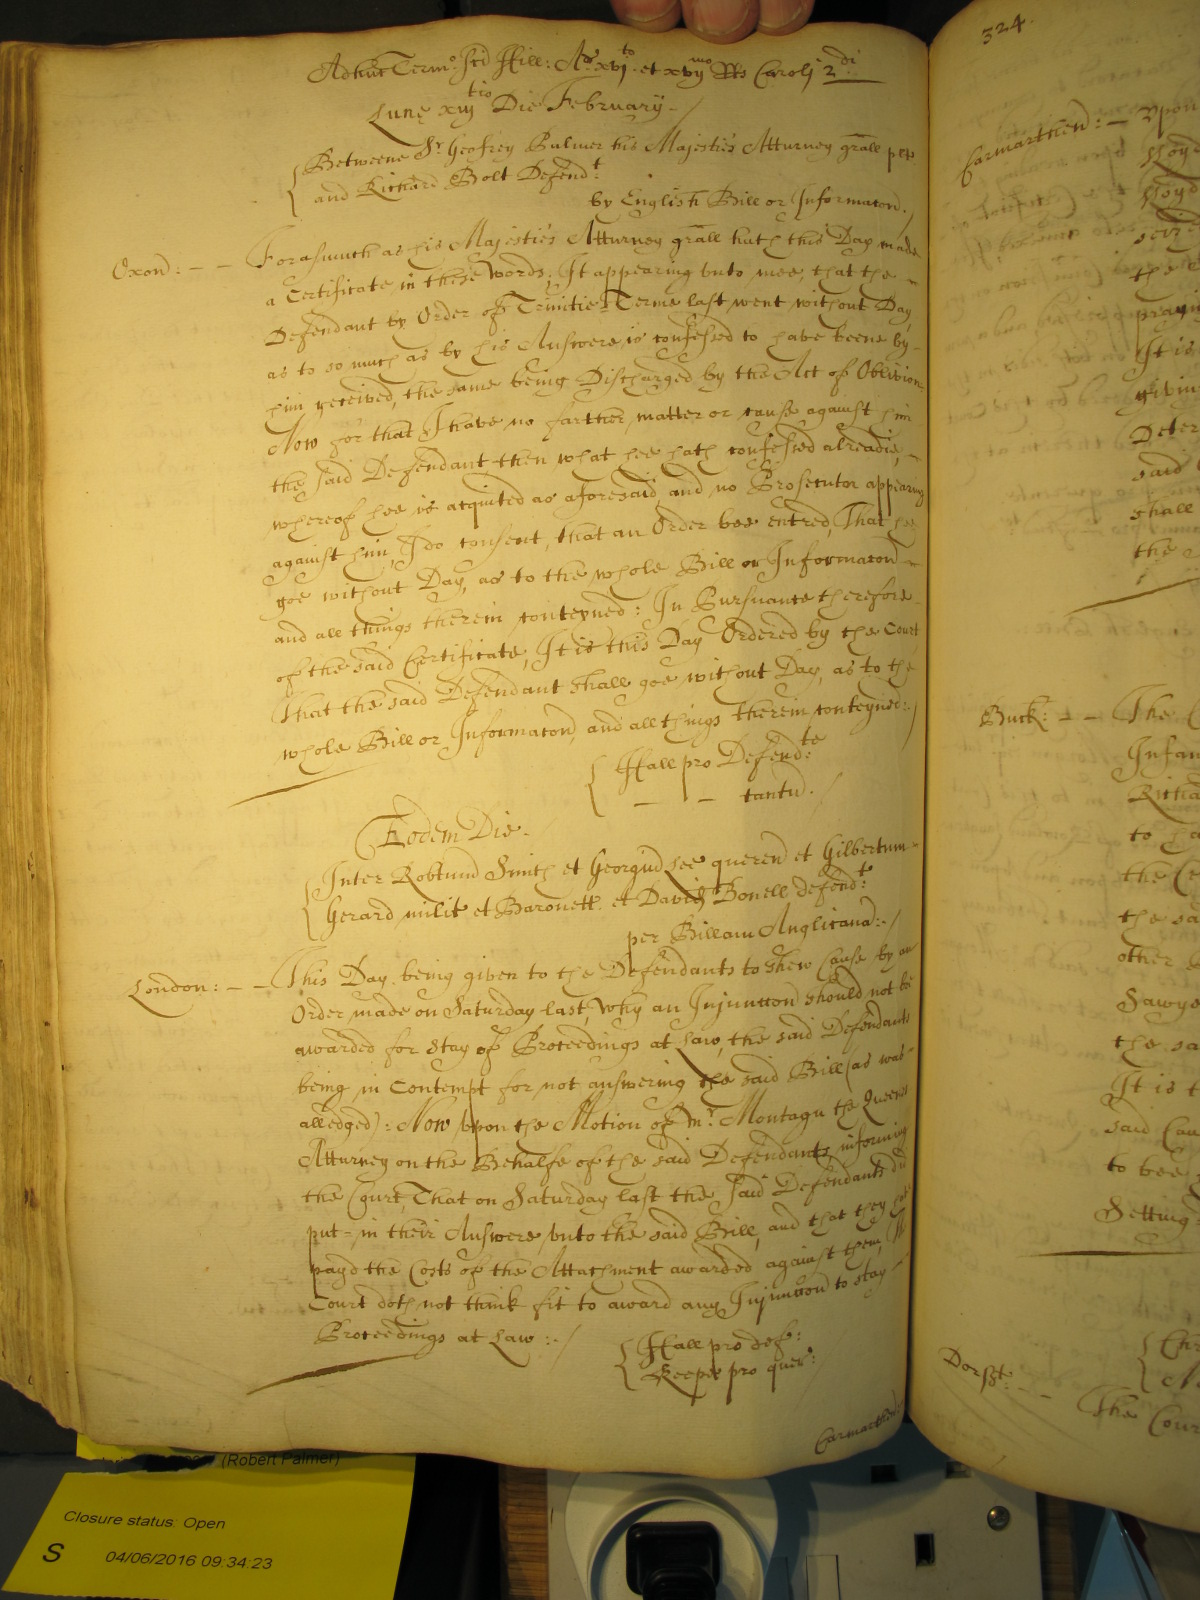 Adhuc Termo Scd Hill: Ao xvjto et xvijmo Rs Caroli 2di
Lune xiijtio Die February
Betweene Sr Geofrey Pulmer his Majesties Atturney grall plt
and Richard Bolt Defendt
by English Bill or Informacon.
Oxon: — — Forasmuch as his Majesties Atturney grall hath this Day made
a Certificate in these words; It appearing vnto mee, that the
Defendant by Order of Trinitie Terme last went without Day,
as to so much as by his Answere is confessed to have beene by
him received, the same being Discharged by the Act of Oblivion
Now for that I have no farther matter or cause against him
the said Defendant then what hee hath confessed alreadie,
whereof hee is acquited as aforesaid, and no Prosecutor appearing
against him, I do consent, that an Order bee entred, That hee
goe without Day, as to the whole Bill or Informacon
and all things therein conteyned: In Pursuance therefore
of the said Certificate, It is this Day Ordered by the Court
That the said Defendant shall goe without Day, as to the
whole Bill or Informacon, and all things therein conteyned:
Hall pro Defendte
— — tantu.
Eodem Die.
Inter Robtum Smith et Georgiu Lee queren et Gilbertum
Gerard milit et Baronett et David Bonell defendt
per Billam Anglicana:
London: — — This Day being given to the Defendants to shew Cause by an
Order made on Saturday last, Why an Injuncon should not be
awarded for stay of Proceedings at Law, the said Defendants
being in Contempt for not answering the said Bill (as was
alledged): Now vpon the Motion of mr Montagu the Queenes
Atturney on the Behalfe of the said Defendants, informing
the Court, That on Saturday last the said Defendants did
put in their Answere vnto the said Bill, and that they
payd the Costs of the Attachment awarded against them,
Court doth not think fit to award any Injuncon to stay
Proceedings at Law:
Hall pro def:
Keepe pro quer:
Carmarthen:
324.
Carmarthen: — Vpon
Lloyd
Lloyd
the
praying
It is
giving
Deter
said
shall
the
Buck: — — The
Infan
Richa
to
the
the sa
other
Sawye
the sa
It is t
said Cau
to bee
Setting
Dorst: — — The Cour
(Robert Palmer)
Closure status: Open
S 04/06/2016 09:34:23